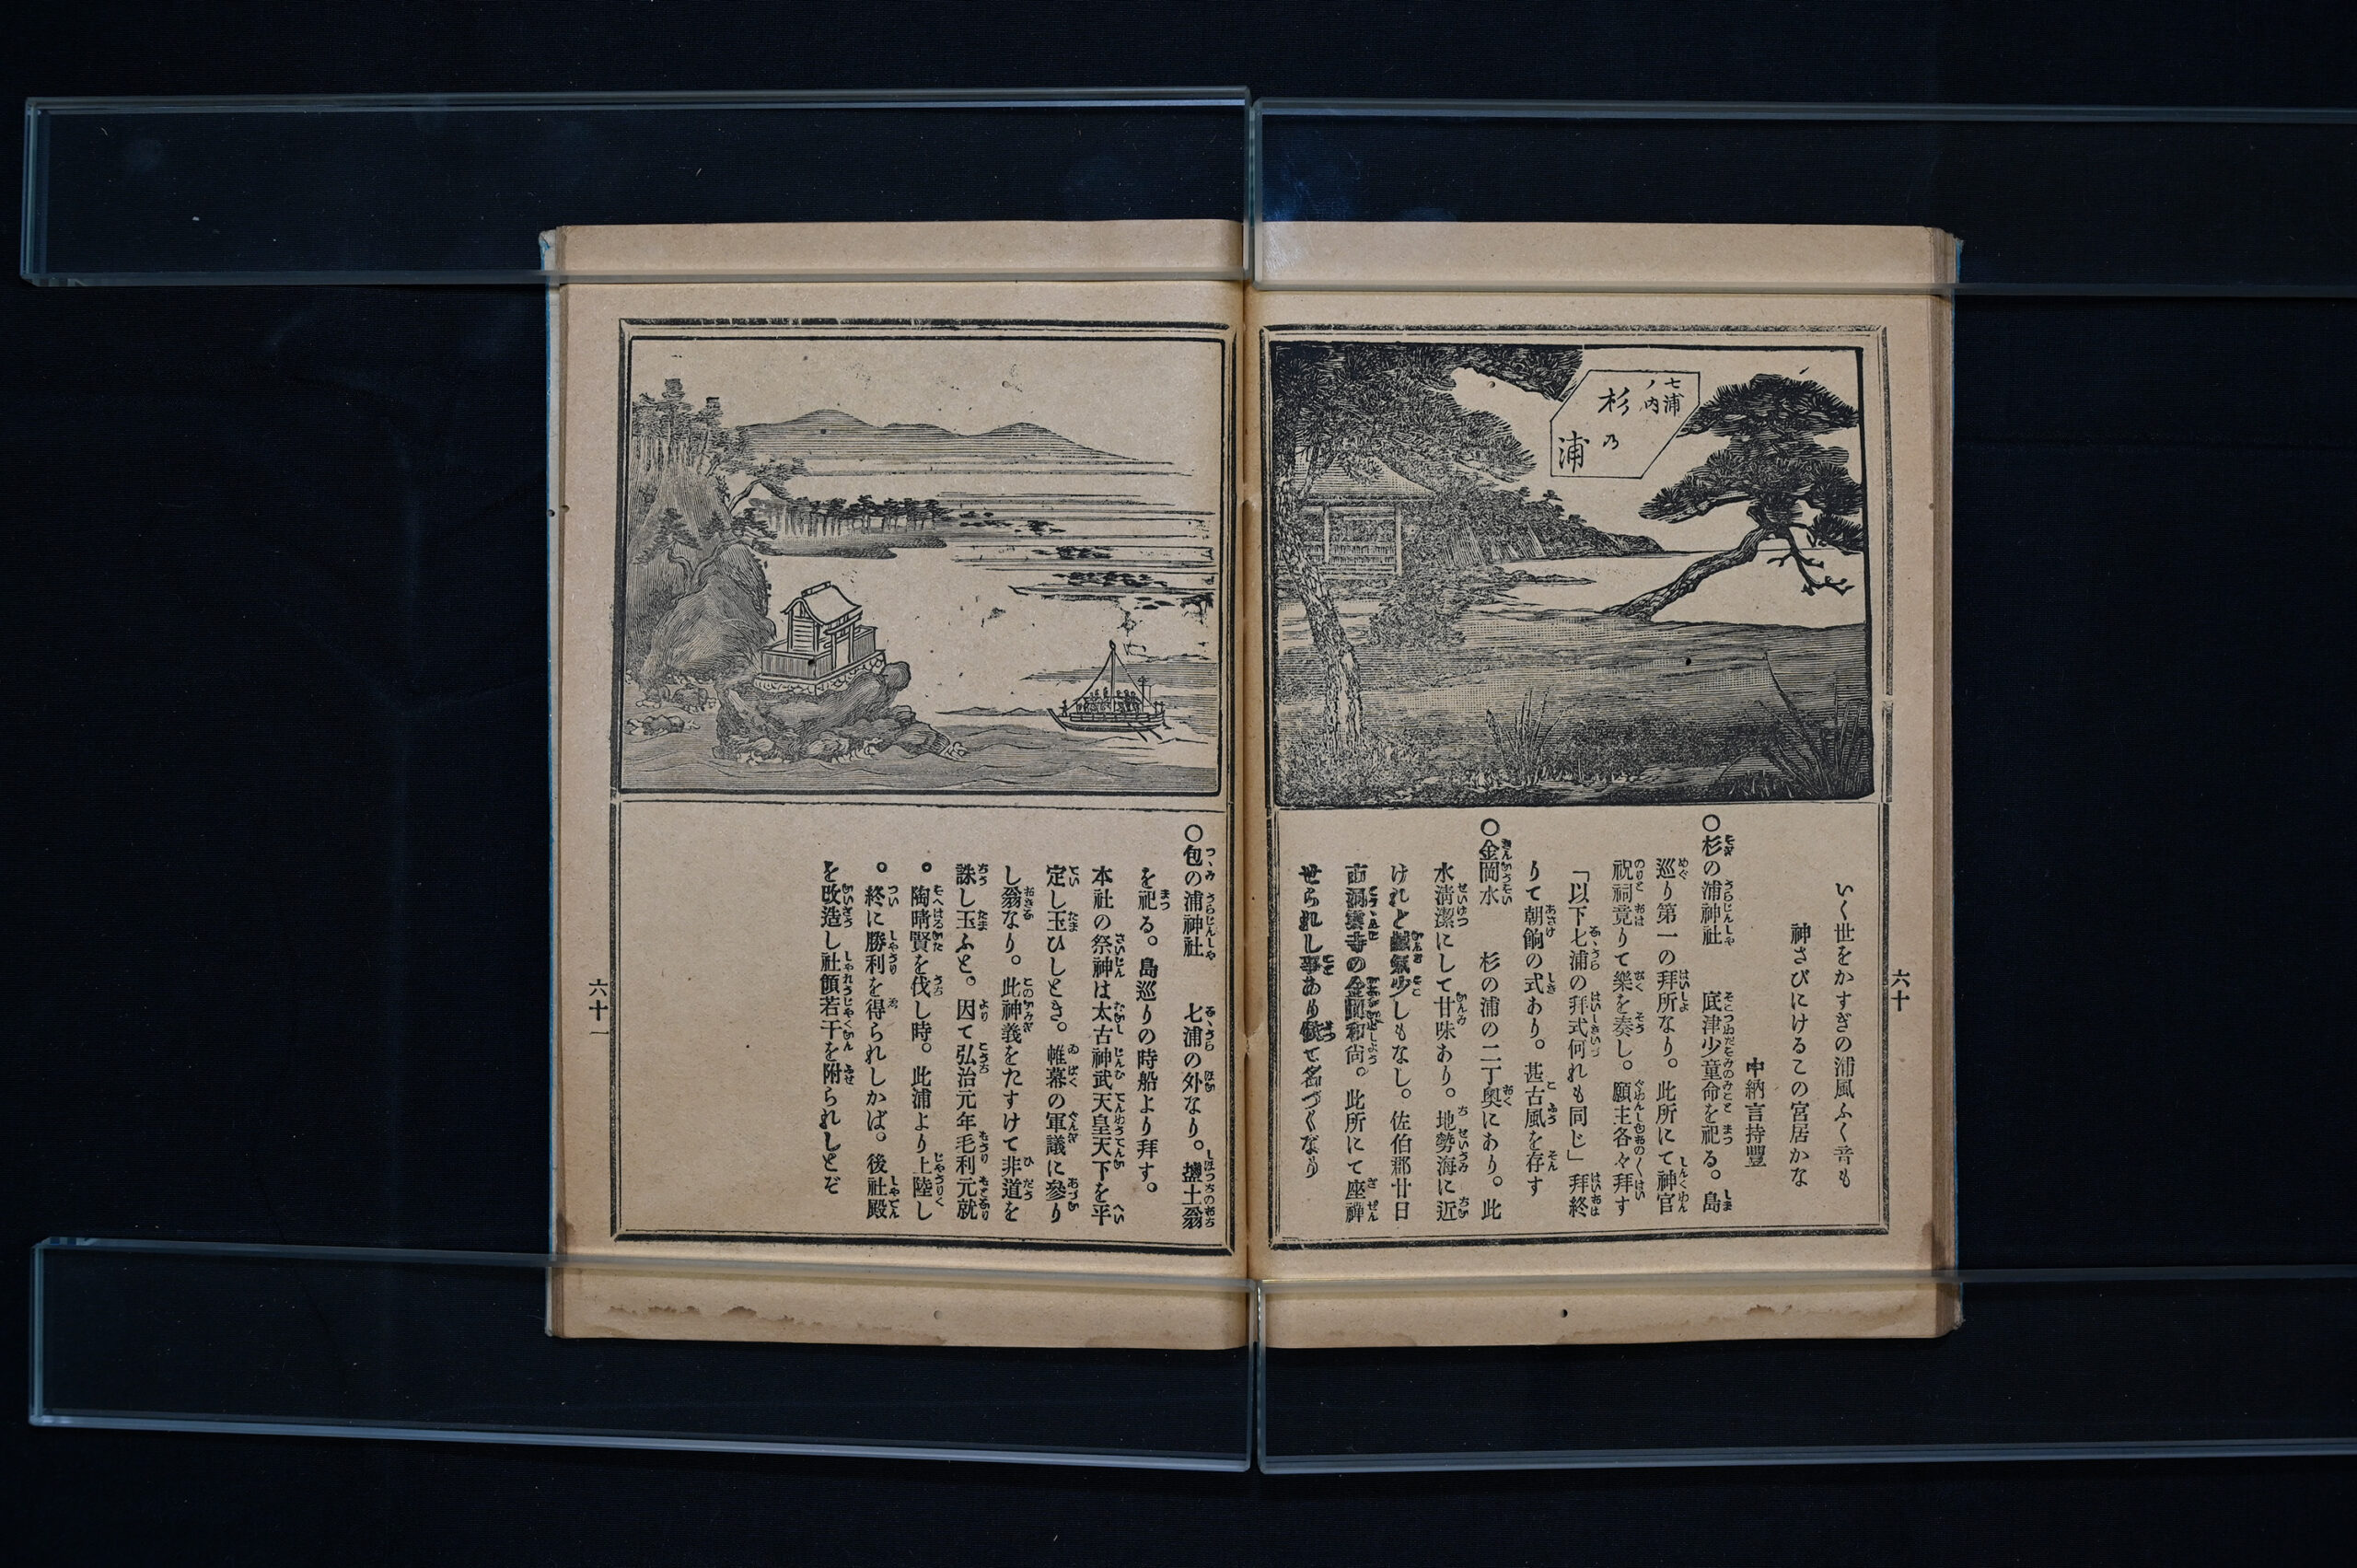 七浦
ノ内
杉乃
浦
いく世をかすぎの浦風ふく音も
神さびにけるこの宮居かな
中納言持豐
〇杉の浦神社　底津少童命を祀る。島
巡り第一の拜所なり。此所にて神官
祝祠竟りて樂を奏し。願主各々拜す
「以下七浦の拜式何れも同じ」拜終
りて朝餉の式あり。甚古風を存す
〇金岡水　杉の浦の二丁奧にあり。此
水淸潔にして甘味あり。地勢海に近
けれと鹹氣少しもなし。佐伯郡廿日
市洞雲寺の金岡和尙。此所にて座禪
せられし事あり依て名づくなり
六十
〇包の浦神社　七浦の外なり。鹽土翁
を祀る。島巡りの時船より拜す。
本社の祭神は太古神武天皇天下を平
定し玉ひしとき。帷幕の軍議に參り
し翁なり。此神義をたすけて非道を
誅し玉ふと。因て弘治元年毛利元就
。陶晴賢を伐し時。此浦より上陸し
。終に勝利を得られしかば。後社殿
を改造し社領若干を附られしとぞ
六十一